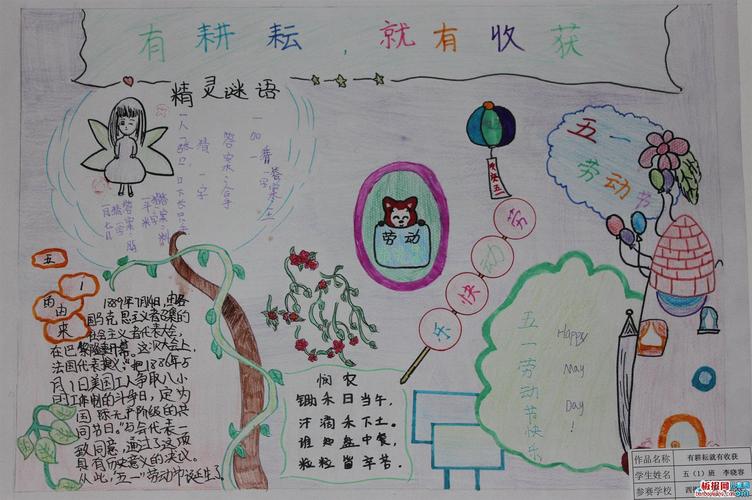 有耕耘，就有收获
精灵谜语
一加一
猜一字
答案：王
猜一字
五一
的由来
1889年7月14日，由各
国马克思主义者召集的
社会主义者代表大会，
在巴黎隆重开幕。这次大会上，
法国代表提议：把1886年5
月1日美国工人争取八小
时工作制的斗争日，定为
国际无产阶级的共
同节日。与会代表一
致同意，通过了这项
具有历史意义的决议。
从此，"五一"劳动节诞生了
劳动
欢庆五一
劳动快乐
悯农
锄禾日当午，
汗滴禾下土。
谁知盘中餐，
粒粒皆辛苦。
五一
劳动节
五一劳动节快乐
Happy
May
Day
!
作品名称 有耕耘就有收获
学生姓名 五（1）班 李晓蓉
参赛学校
板报网